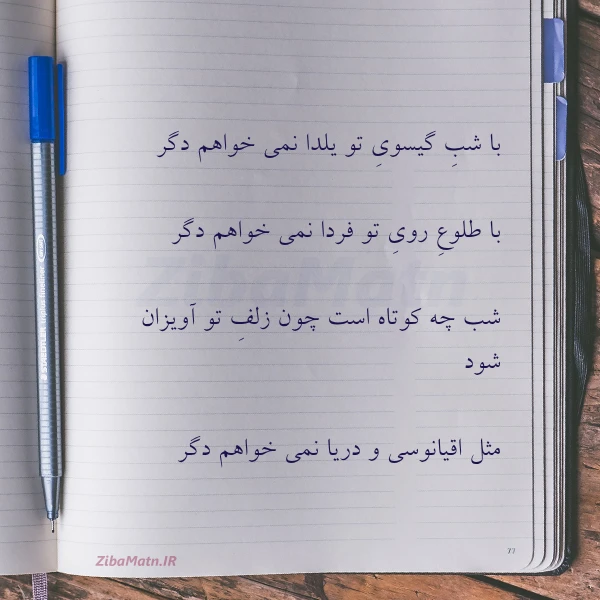 با شبِ گیسویِ تو یلدا نمی خواهم دگر
با طلوعِ رویِ تو فردا نمی خواهم دگر
شب چه کوتاه است چون زلفِ تو آویزان
شود
مثل اقیانوسی و دریا نمی خواهم دگر
ZibaMatn
ZibaMatn.IR